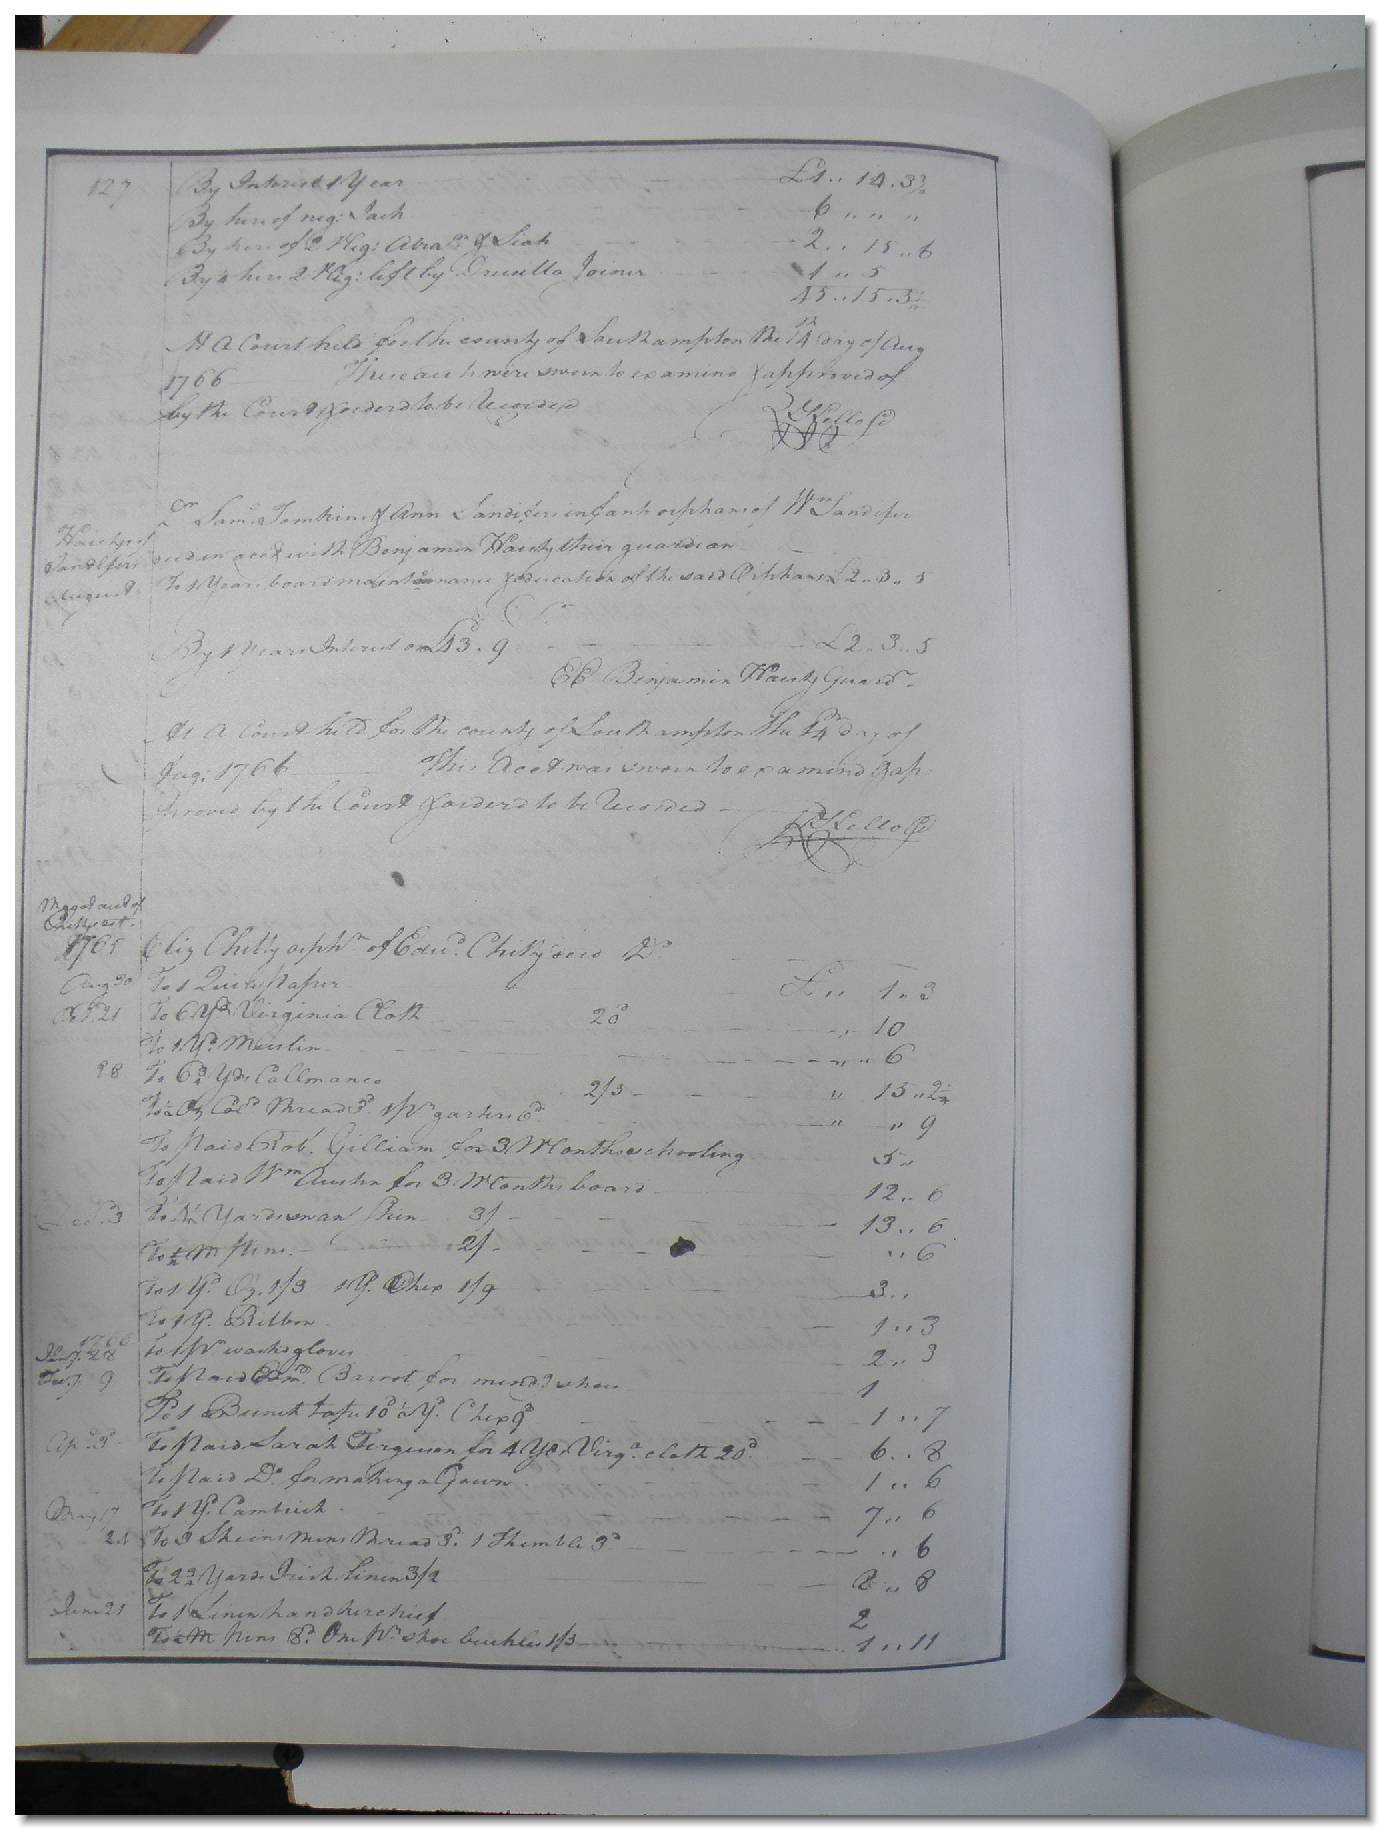 127 By Interest 1 Year £1 .. 14 . 3½
By hire of neg: Jack 6 " " "
By hire of 2 Neg: Abra.m & Siah 2 .. 15 .. 6
By hire 2 Neg: left by Drusilla Joiner 1 " 5
45 .. 15 . 3½
At a Court held for the county of Southampton the 14 day of Aug
1766 These accts were sworn to examind & approved of
by the Court & orderd to be Recorded
Kello Cl
Saml Tomkins & Ann Sandifer infant orphans of Wm Sandifer
Hairty of
Sandifers decd in acct with Benjamin Hairty their guardian
August To 1 Years board maintenance & education of the said Orphans £2 .. 3 .. 5
Cr
By 1 Years Interest on £43 . 9 £2 .. 3 .. 5
EE Benjamin Hairty Guardn
At a Court held for the county of Southampton the 14 day of
Aug: 1766 This Acct was sworn to examind & ap
proved by the Court & orderd to be Recorded
Kello Cl
1765 Eliz Chitty orphn of Edwd Chitty decd Dr
Aug 30 To 1 Quire paper £ " 1 " 3
Oct 21 To 6 Yds Virginia Cloth 20d " 10
To 1 Yd Muslin " " 6
28 To 6¾ Yds Callmanco 2/3 " 15 " 2¼
To ½ Oz Cold thread 3d 1 pr garters 6d " " 9
To paid Robt Gilliam for 3 Months schooling 5 "
To paid Wm Austin for 3 Months board 12 .. 6
3 To 4½ Yards swan skin 3/ 13 .. 6
To ¼ M pins 2/ " 6
To 1 Yd Oz. 1/3 1 Yd Chex 1/9 3 ..
To 1 Yd Ribbon 1 .. 3
1766
Jany 28 To 1 pr gloves 2 .. 3
9 To paid Barrot for mendg shoes 1
To 1 Bunch tape 10d Yd Chex 9d 1 .. 7
Apl 3 To paid Sarah Ferguson for 4 Yds Virga cloth 20d 6 .. 8
To paid Do for making a Gown 1 .. 6
May 17 To 1 Yd Cambrick 7 .. 6
24 To 3 Skeins thread 3d 1 Thimble 3d .. 6
To 2¾ Yards Irish linen 3/2 8 .. 8
June 21 To 1 Linen handkerchief 2
To ½ M pins 8d One pr shoe buckles 1/3 1 .. 11